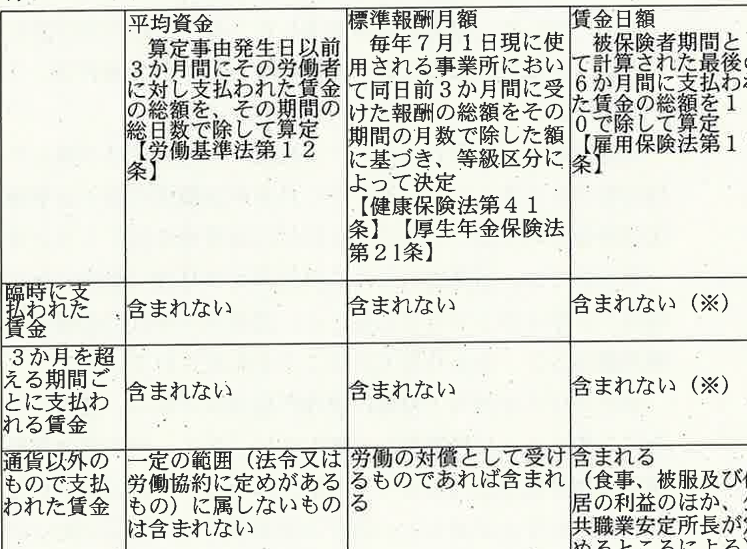 平均資金
算定事由発生日以前
３か月間にその労働者
に対し支払われた賃金
の総額を、その期間の
総日数で除して算定
【労働基準法第１２
条】
標準報酬月額
毎年７月１日現に使
用される事業所におい
て同日前３か月間に受
けた報酬の総額をその
期間の月数で除した額
に基づき、等級区分に
よって決定
【健康保険法第４１
条】【厚生年金保険法
第２1条】
賃金日額
被保険者期間と
て計算された最後
６か月間に支払わ
た賃金の総額を１
０で除して算定
【雇用保険法第１
条】
臨時に支
払われた
賃金
含まれない
含まれない
含まれない（※）
３か月を超
える期間ご
とに支払わ
れる賃金
含まれない
含まれない
含まれない（※）
通貨以外の
もので支払
われた賃金
一定の範囲（法令又は
労働協約に定めがある
もの）に属しないもの
は含まれない
労働の対償として受け
るものであれば含まれ
る
含まれる
（食事、被服及び
居の利益のほか、
共職業安定所長が
めるところによる）